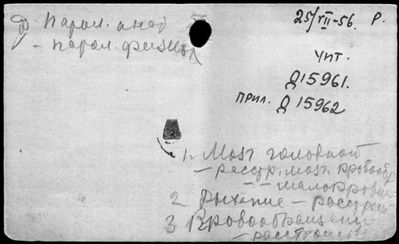 Д Парал. анат
- парал. физиол
25/VII-56. Р.
Чит.
Д15961.
Прил. Д 15962
1. Мозг головной
- расстр. мозг. кровообр
- - малокровие
2 Дыхание - расстр
3 Кровообращение
- расстройств